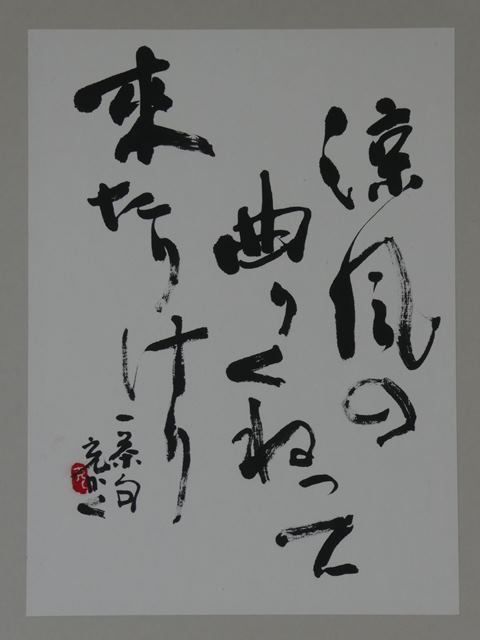 涼風の
曲りくねって
來たりけり
一茶句